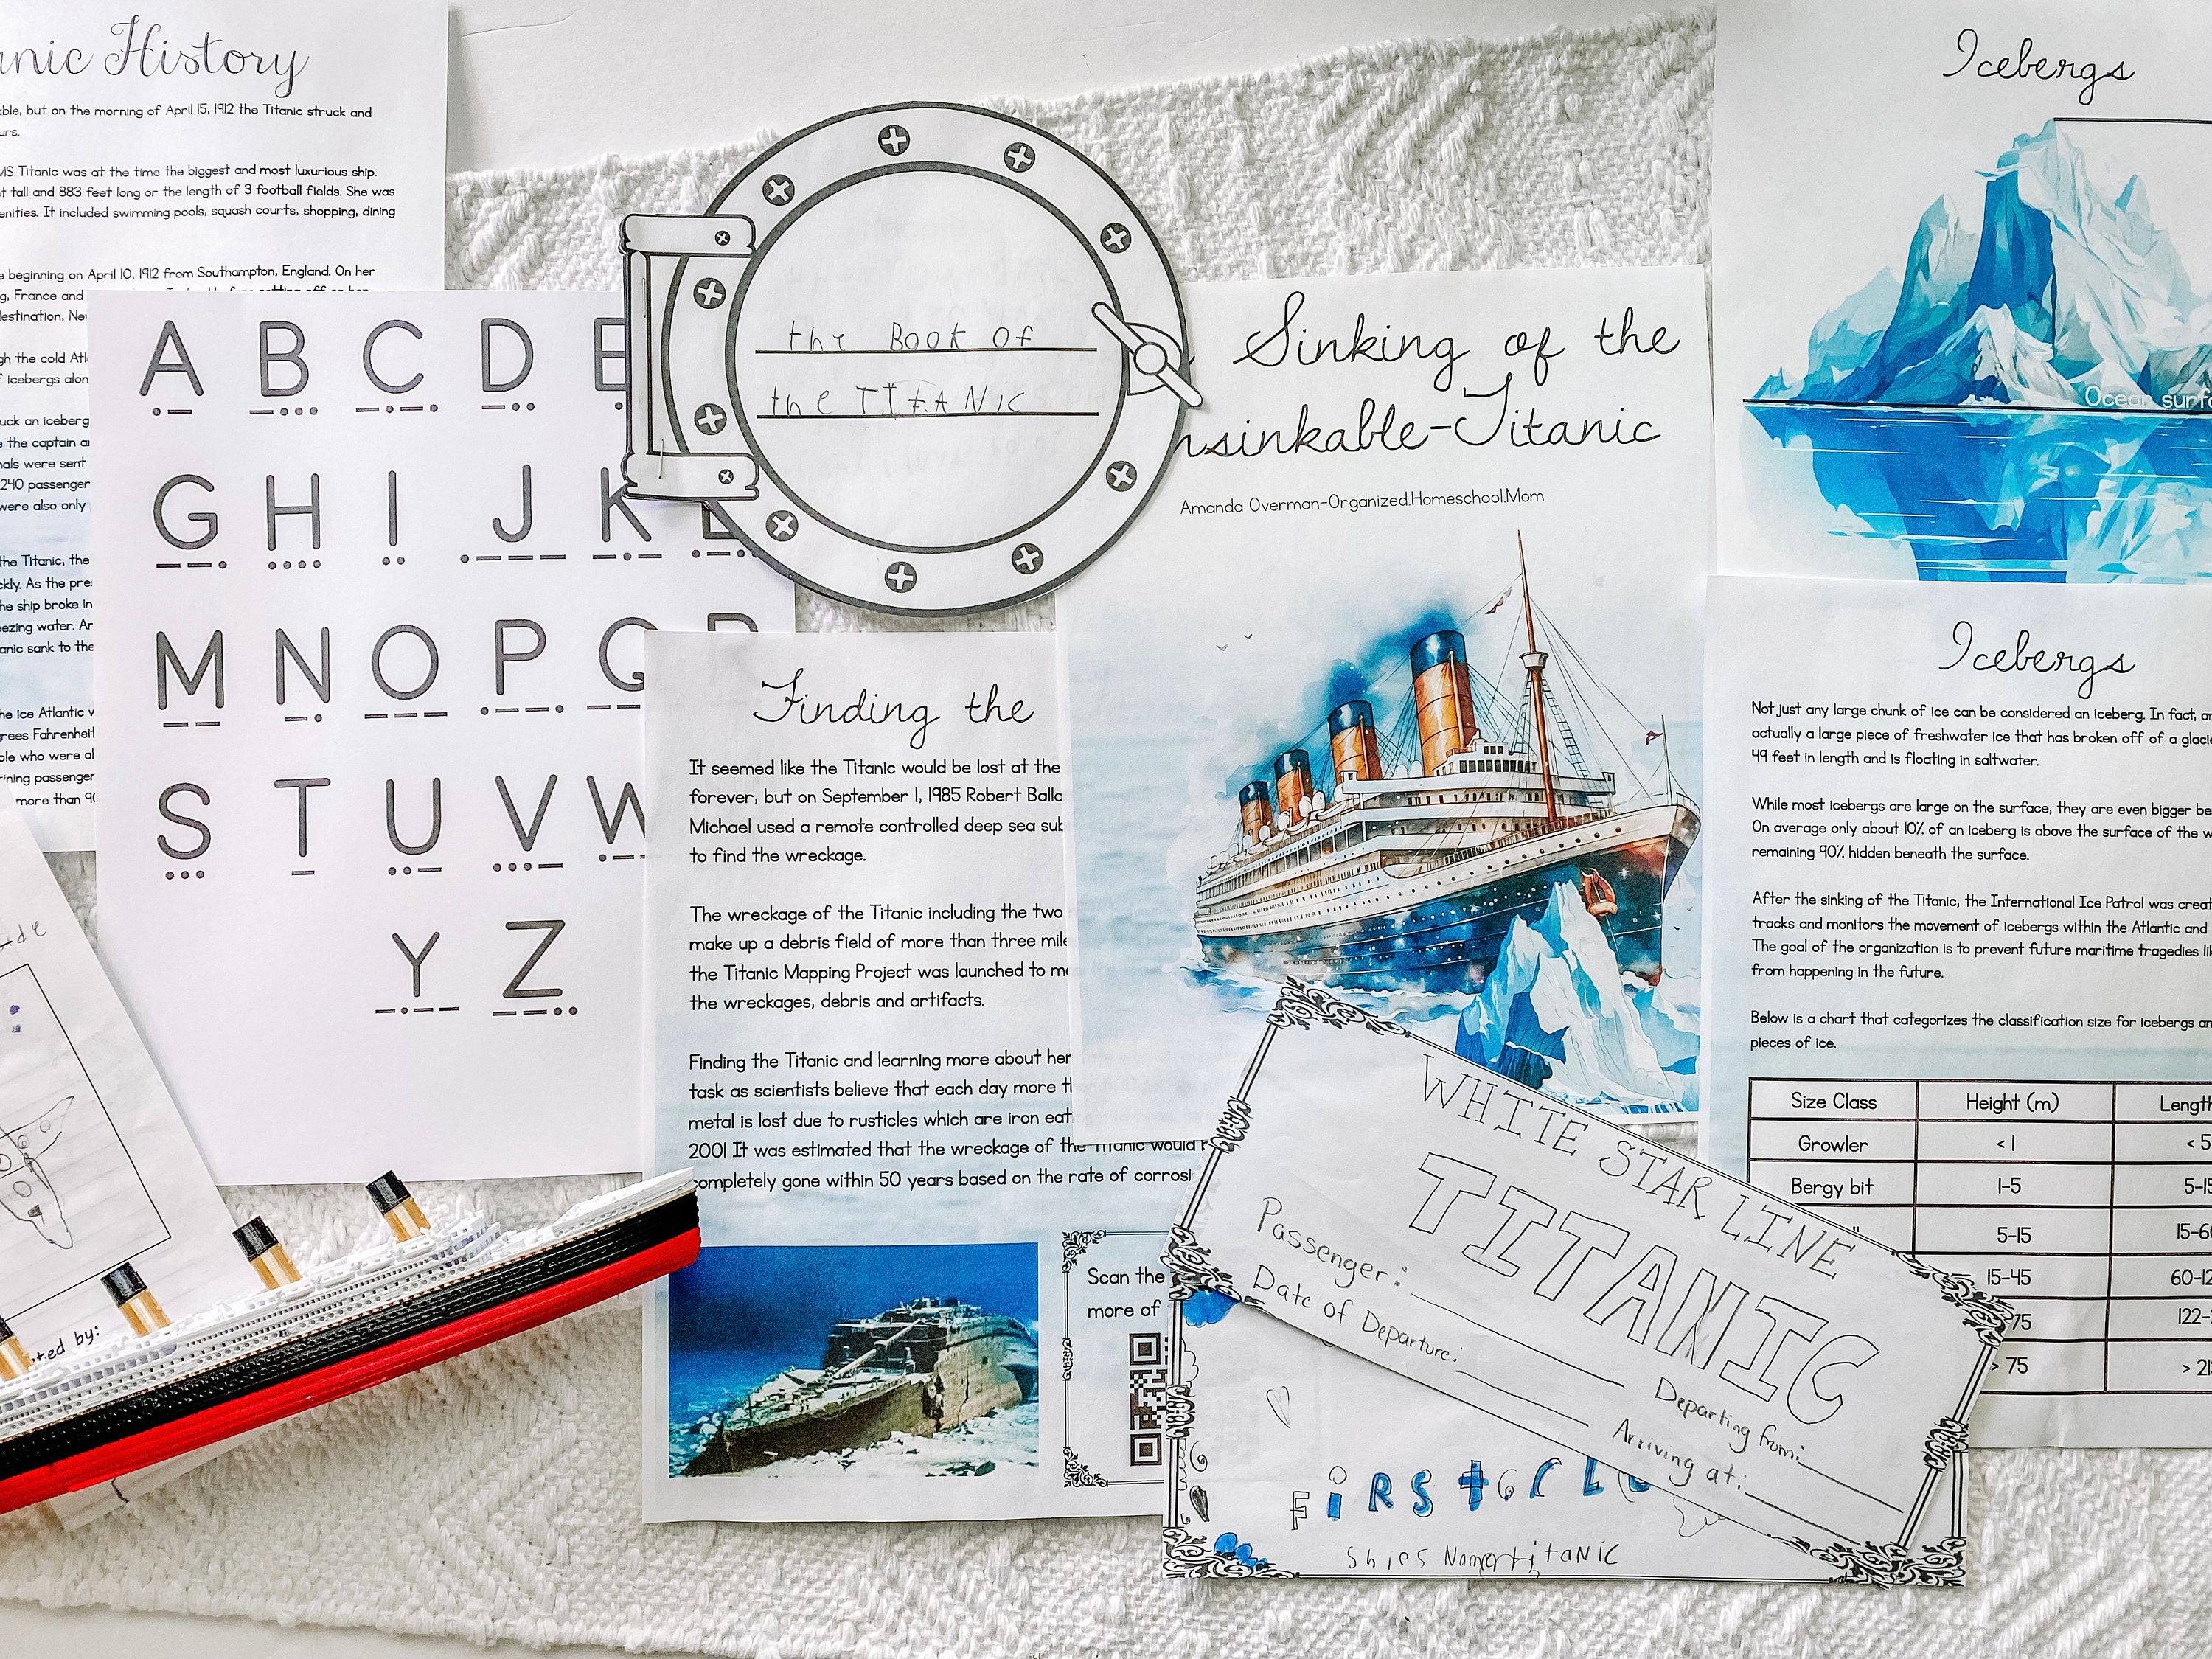 anic History
able, but on the morning of April 15, 1912 the Titanic struck and
urs.
MS Titanic was at the time the biggest and most luxurious ship.
t tall and 883 feet long or the length of 3 football fields. She was
enities. It included swimming pools, squash courts, shopping, dining
e beginning on April 10, 1912 from Southampton, England. On her
g, France and
destination, Ne
gh the cold Atl
f icebergs alon
uck an iceberg
e the captain a
nals were sent
240 passenger
were also only
the Titanic, the
ckly. As the pre
he ship broke in
ezing water. Ar
anic sank to the
he ice Atlantic
rees Fahrenheit
ple who were ab
ining passenger
more than 90
A B C D E
G H I J K L
M N O P Q R
S T U V W
Y Z
the Book of
the TITANic
Sinking of the
nsinkable-Titanic
Amanda Overman-Organized.Homeschool.Mom
Icebergs
Ocean surf
Finding the
It seemed like the Titanic would be lost at the
forever, but on September 1, 1985 Robert Balla
Michael used a remote controlled deep sea sub
to find the wreckage.
The wreckage of the Titanic including the two
make up a debris field of more than three mile
the Titanic Mapping Project was launched to m
the wreckages, debris and artifacts.
Finding the Titanic and learning more about her
task as scientists believe that each day more th
metal is lost due to rusticles which are iron eat
2001 It was estimated that the wreckage of the Titanic would
completely gone within 50 years based on the rate of corrosi
Scan the
more of
Icebergs
Not just any large chunk of ice can be considered an iceberg. In fact, an
actually a large piece of freshwater ice that has broken off of a glacie
49 feet in length and is floating in saltwater.
While most icebergs are large on the surface, they are even bigger be
On average only about 10% of an iceberg is above the surface of the w
remaining 90% hidden beneath the surface.
After the sinking of the Titanic, the International Ice Patrol was creat
tracks and monitors the movement of icebergs within the Atlantic and
The goal of the organization is to prevent future maritime tragedies li
from happening in the future.
Below is a chart that categorizes the classification size for icebergs an
pieces of ice.
Size Class Height (m) Length
Growler <1 <5
Bergy bit 1-5 5-15
5-15 15-60
15-45 60-12
75 122-
> 75 > 21
WHITE STAR LINE
TITANIC
Passenger:
Date of Departure:
Departing from:
Arriving at:
FiRSt CL
Ships Name titaNiC
ted by: